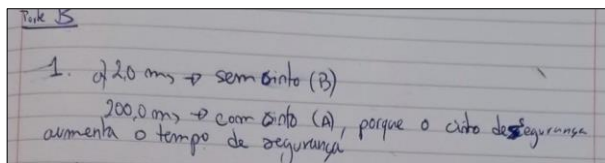 Parte B
1. a) 2,0 ms → sem cinto (B)
200,0 ms → com cinto (A), porque o cinto de segurança
aumenta o tempo de segurança